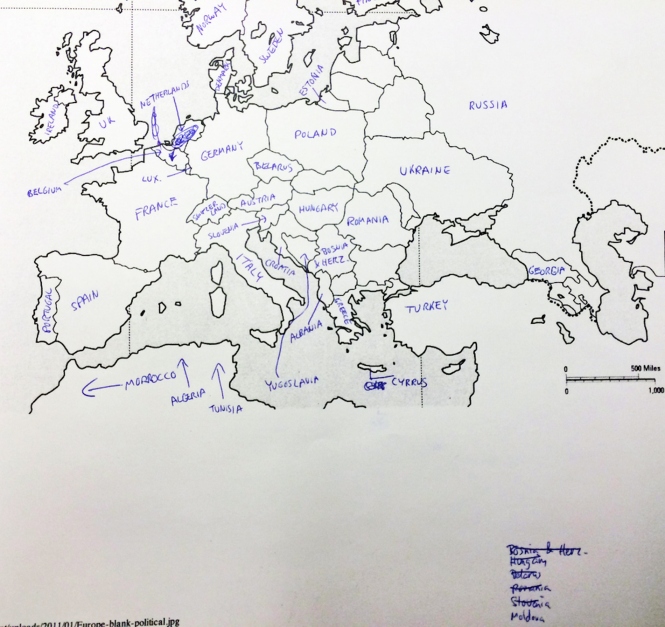 NORWAY
SWEDEN
ESTONIA
RUSSIA
IRELAND
UK
NETHERLANDS
GERMANY
POLAND
BELARUS
UKRAINE
BELGIUM
LUX.
FRANCE
AUSTRIA
HUNGARY
ROMANIA
SLOVENIA
ITALY
CROATIA
BOSNIA
& HERZ.
GEORGIA
PORTUGAL
SPAIN
GREECE
TURKEY
ALBANIA
YUGOSLAVIA
MORROCCO
ALGERIA
TUNISIA
CYRRUS
0 500 Miles
0 1,000
Bosnia & Herz.
Hungary
Romania
Slovenia
Moldova
/2011/01/Europe-blank-political.jpg